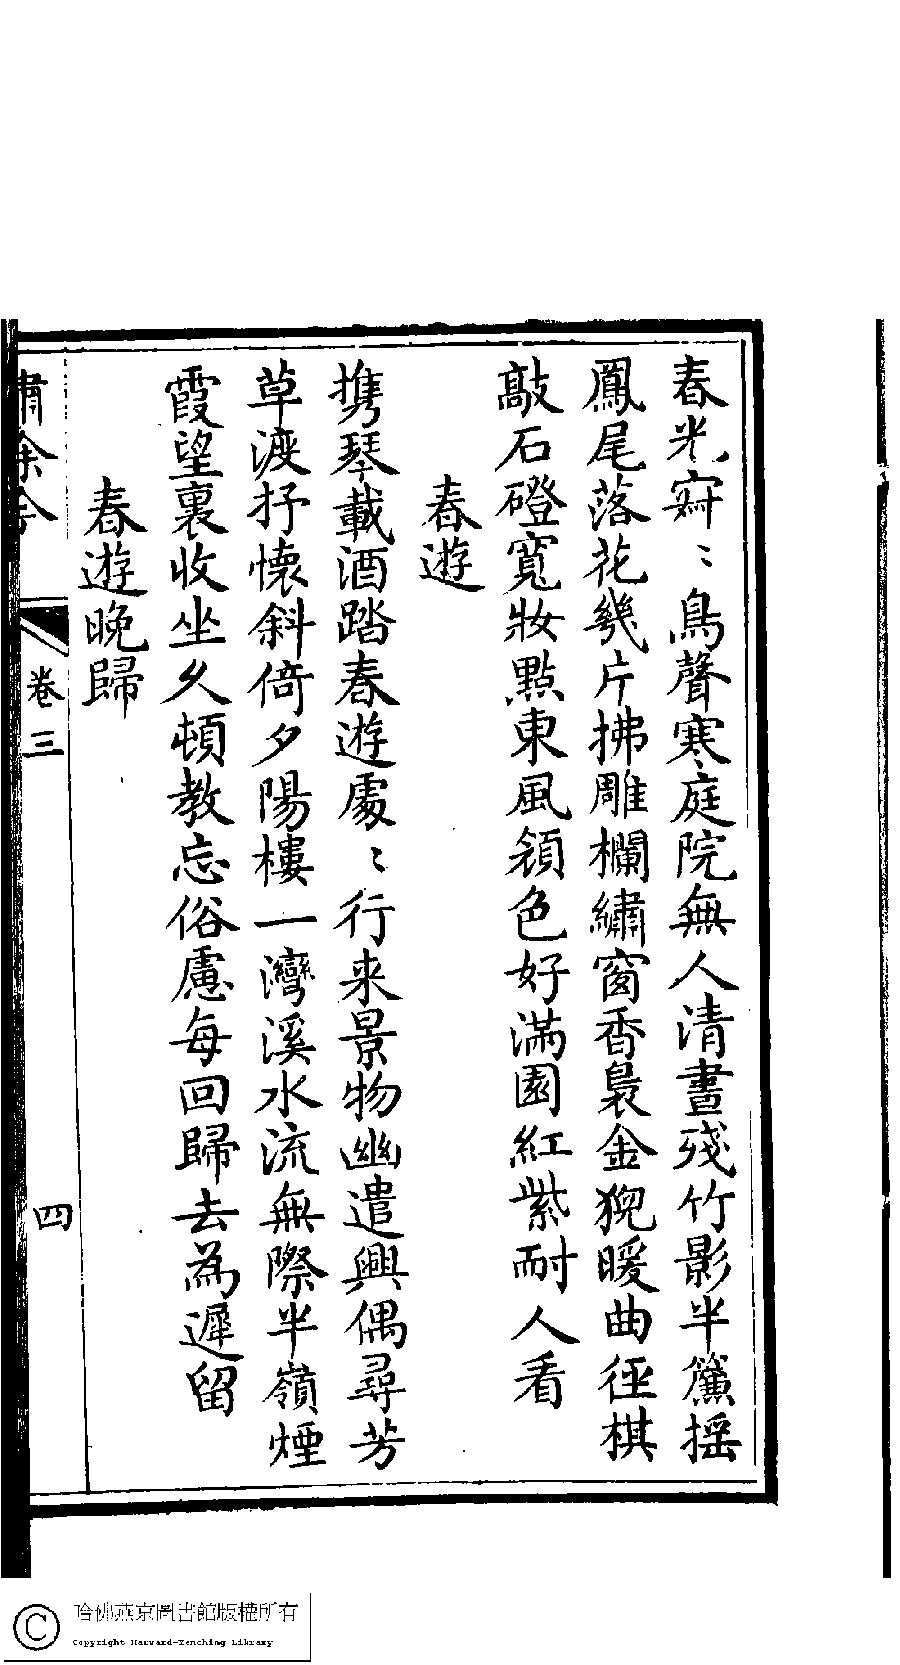 春光寂〻鳥聲寒庭院無人清晝殘竹影半簾搖
鳳尾落花幾片拂雕欄繡窗香裊金猊暖曲徑棋
敲石磴寬妝點東風顔色好滿園紅紫耐人看
春遊
携琴載酒踏春遊處〻行来景物幽遣興偶尋芳
草渡抒懷斜倚夕陽樓一灣溪水流無際半嶺煙
霞望裏收坐久頓教忘俗慮每回歸去為遲留
春遊晚歸
繡餘吟
卷三
四
哈佛燕京圖書館版權所有
Copyright Harvard-Yenching Library